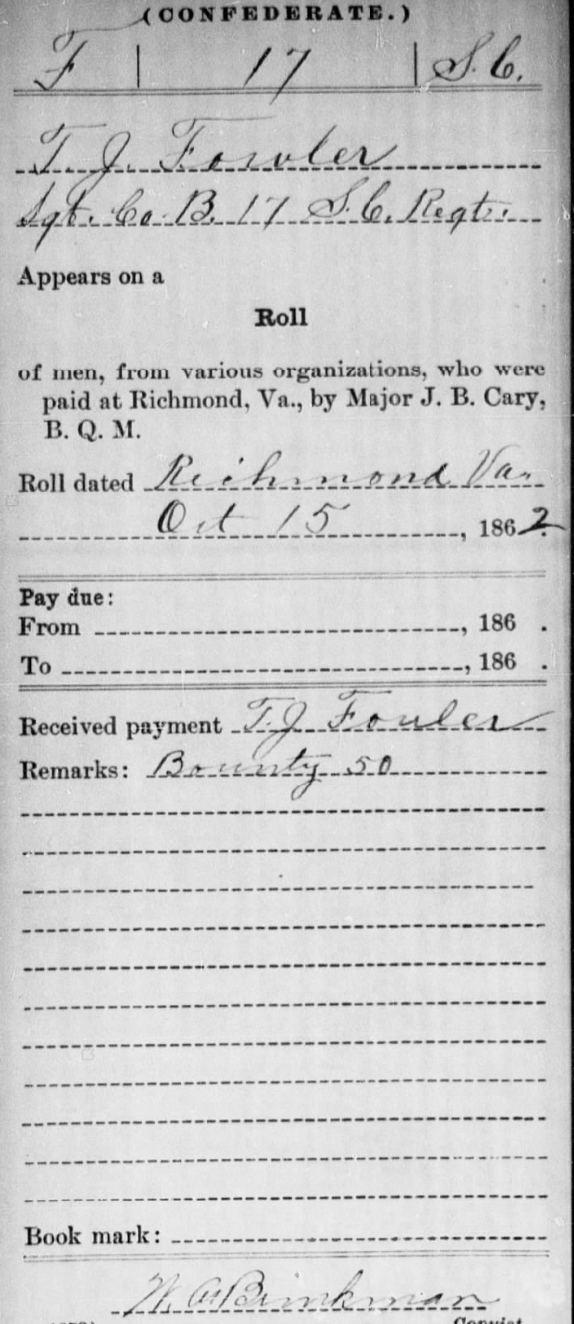 (CONFEDERATE.)
F | 17 | S.C.
T. J. Fowler
Sgt. Co. B. 17 S.C. Regt.
Appears on a
Roll
of men, from various organizations, who were
paid at Richmond, Va., by Major J. B. Cary,
B. Q. M.
Roll dated Richmond Va.
Oct 15, 1862.
Pay due:
From , 186 .
To , 186 .
Received payment T. J. Fowler
Remarks: Bounty 50
Book mark:
Brinkman
Copyist.